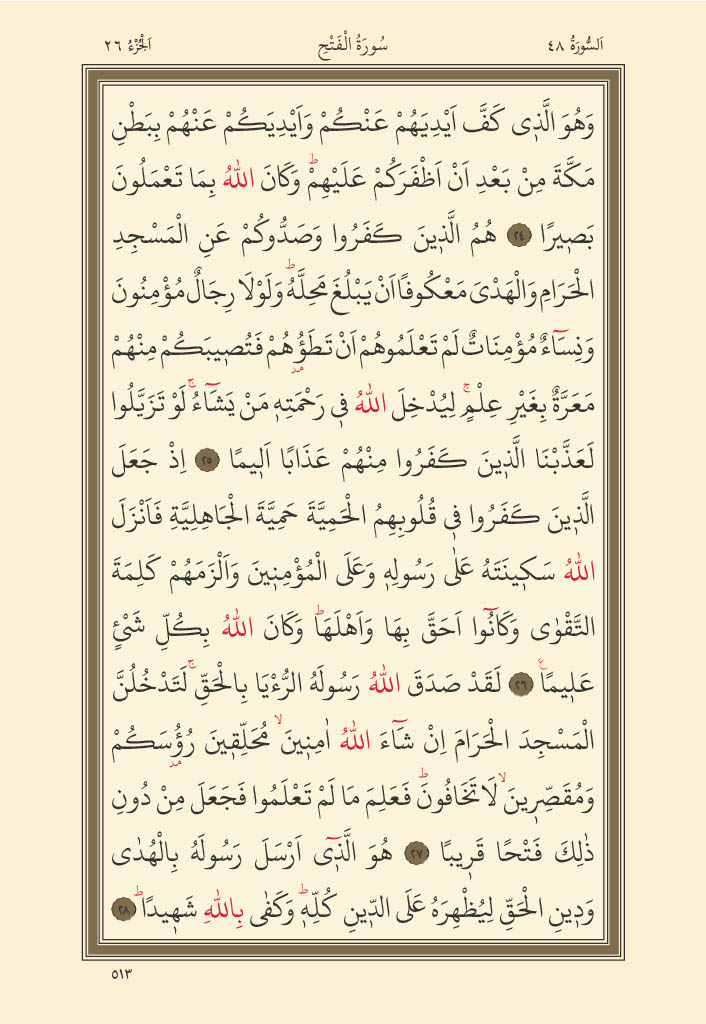 اَلسُّورَةُ ٤٨ سُورَةُ الْفَتْحِ اَلْجُزْءُ ٢٦
وَهُوَ الَّذ۪ى كَفَّ اَيْدِيَهُمْ عَنْكُمْ وَاَيْدِيَكُمْ عَنْهُمْ بِبَطْنِ
مَكَّةَ مِنْ بَعْدِ اَنْ اَظْفَرَكُمْ عَلَيْهِمْۜ وَكَانَ اللّٰهُ بِمَا تَعْمَلُونَ
بَص۪يرًا ﴿٢٤﴾ هُمُ الَّذ۪ينَ كَفَرُوا وَصَدُّوكُمْ عَنِ الْمَسْجِدِ
الْحَرَامِ وَالْهَدْىَ مَعْكُوفًا اَنْ يَبْلُغَ مَحِلَّهُۜ وَلَوْلَا رِجَالٌ مُؤْمِنُونَ
وَنِسَٓاءٌ مُؤْمِنَاتٌ لَمْ تَعْلَمُوهُمْ اَنْ تَطَؤُ۫هُمْ فَتُص۪يبَكُمْ مِنْهُمْ
مَعَرَّةٌ بِغَيْرِ عِلْمٍۚ لِيُدْخِلَ اللّٰهُ ف۪ى رَحْمَتِه۪ مَنْ يَشَٓاءُۚ لَوْ تَزَيَّلُوا
لَعَذَّبْنَا الَّذ۪ينَ كَفَرُوا مِنْهُمْ عَذَابًا اَل۪يمًا ﴿٢٥﴾ اِذْ جَعَلَ
الَّذ۪ينَ كَفَرُوا ف۪ى قُلُوبِهِمُ الْحَمِيَّةَ حَمِيَّةَ الْجَاهِلِيَّةِ فَاَنْزَلَ
اللّٰهُ سَك۪ينَتَهُ عَلٰى رَسُولِه۪ وَعَلَى الْمُؤْمِن۪ينَ وَاَلْزَمَهُمْ كَلِمَةَ
التَّقْوٰى وَكَانُٓوا اَحَقَّ بِهَا وَاَهْلَهَاۜ وَكَانَ اللّٰهُ بِكُلِّ شَىْءٍ
عَل۪يمًا۟ ﴿٢٦﴾ لَقَدْ صَدَقَ اللّٰهُ رَسُولَهُ الرُّءْيَا بِالْحَقِّۚ لَتَدْخُلُنَّ
الْمَسْجِدَ الْحَرَامَ اِنْ شَٓاءَ اللّٰهُ اٰمِن۪ينَۙ مُحَلِّق۪ينَ رُؤُ۫سَكُمْ
وَمُقَصِّر۪ينَۙ لَا تَخَافُونَۜ فَعَلِمَ مَا لَمْ تَعْلَمُوا فَجَعَلَ مِنْ دُونِ
ذٰلِكَ فَتْحًا قَر۪يبًا ﴿٢٧﴾ هُوَ الَّذ۪ٓى اَرْسَلَ رَسُولَهُ بِالْهُدٰى
وَد۪ينِ الْحَقِّ لِيُظْهِرَهُ عَلَى الدّ۪ينِ كُلِّه۪ۜ وَكَفٰى بِاللّٰهِ شَه۪يدًاۜ ﴿٢٨﴾
٥١٣